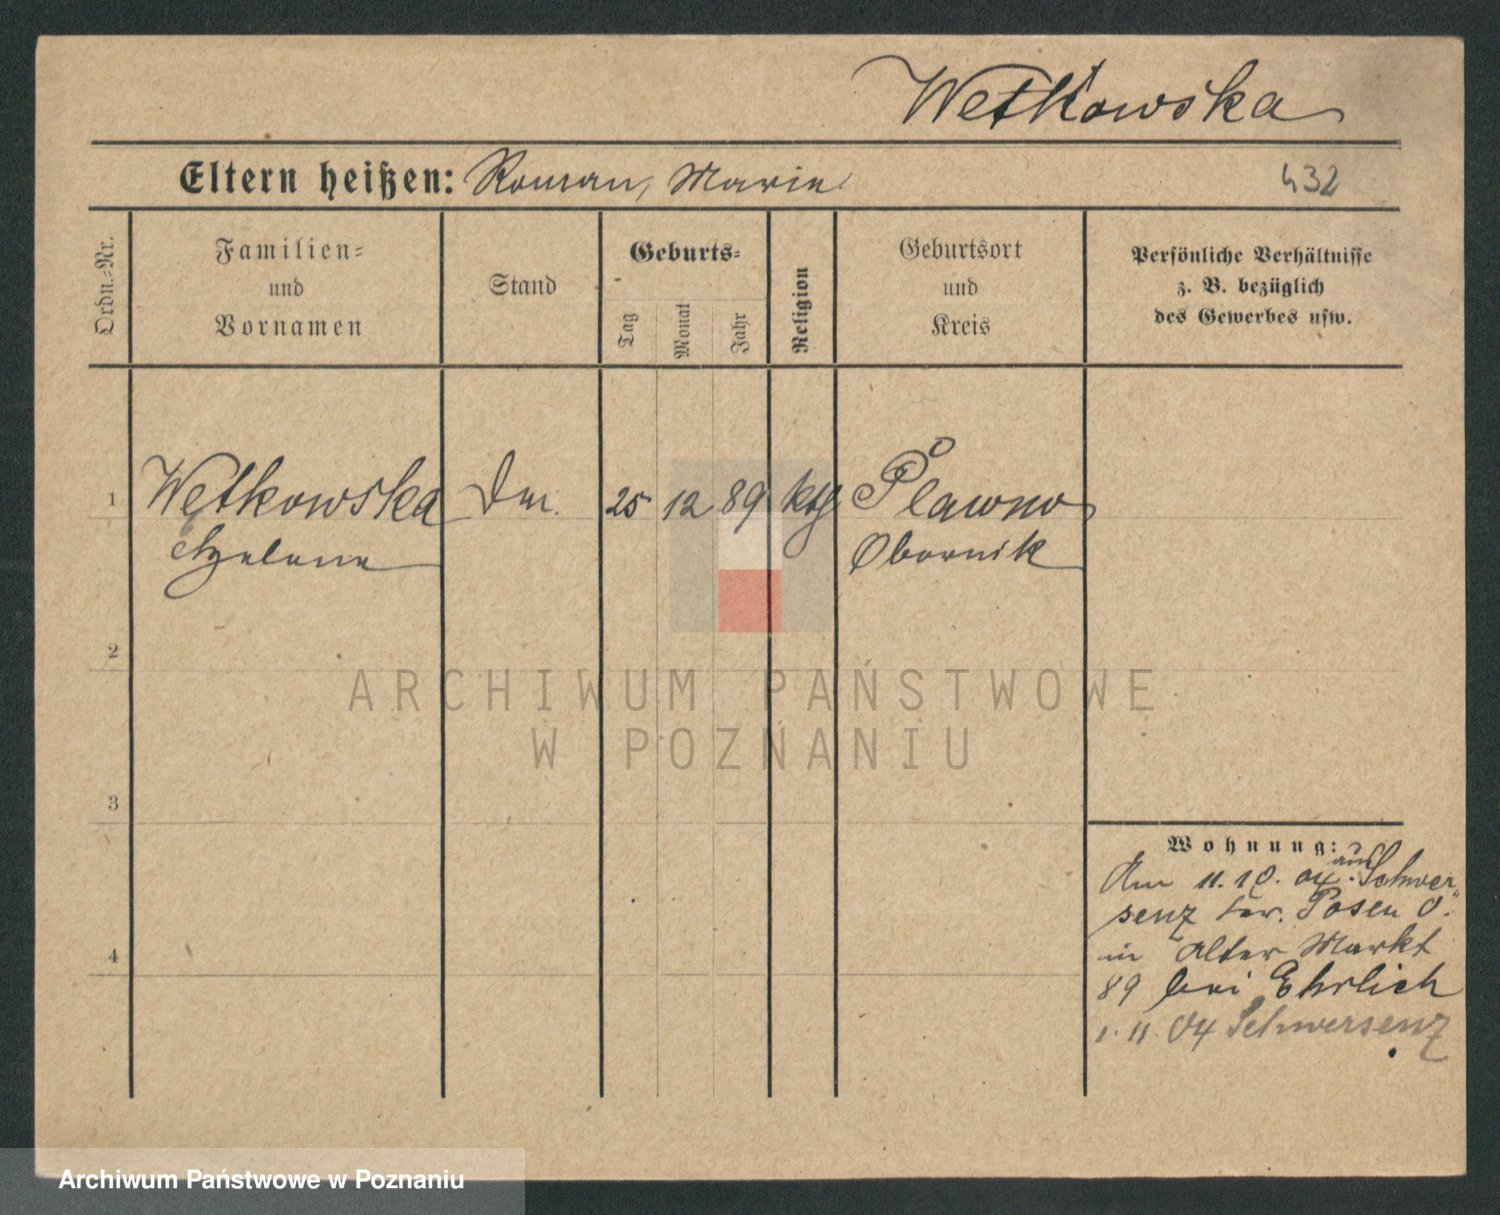 Wetkowska
Eltern heißen: Roman, Marie
432
Ordn.-Nr.
Familien-
und
Vornamen
Stand
Geburts-
Tag
Monat
Jahr
Religion
Geburtsort
und
Kreis
Persönliche Verhältnisse
z. B. bezüglich
des Gewerbes usw.
1 Wętkowska Dm. 25 12 89 kth Plawno
Helene Obornik
2
3
4
Wohnung:
Am 11.10.04 aus Schwer-
senz Posen O.
in Alter Markt
89 bei Ehrlich
1.11.04 Schwersenz
ARCHIWUM PAŃSTWOWE
W POZNANIU
Archiwum Państwowe w Poznaniu